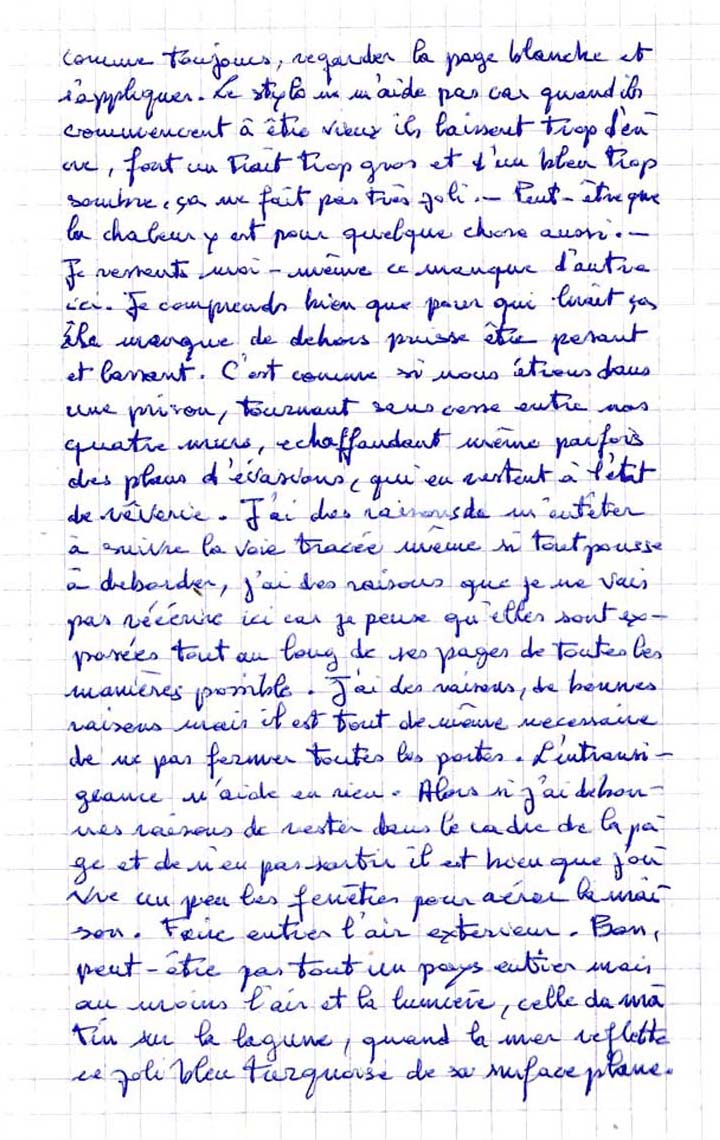 comme toujours, regarder la page blanche et
s'appliquer. Le stylo ne m'aide pas car quand ils
commencent à être vieux ils laissent trop d'en
cre, font un trait trop gros et d'un bleu trop
sombre, ça ne fait pas très joli. - Peut-être que
la chaleur y est pour quelque chose aussi. -
Je ressents moi-même ce manque d'autre
ici. Je comprends bien que pour qui lirait ça,
le manque de dehors puisse être pesant
et lassant. C'est comme si nous étions dans
une prison, tournant sans cesse entre nos
quatre murs, echaffaudant même parfois
des plans d'évasions, qui en restent à l'état
de rêverie. J'ai des raisons de m'entêter
à suivre la voie tracée même si tout pousse
à deborder, j'ai des raisons que je ne vais
pas réécrire ici car je pense qu'elles sont ex-
posées tout au long de ses pages de toutes les
manières possible. J'ai des raisons, de bonnes
raisons mais il est tout de même necessaire
de ne pas fermer toutes les portes. L'intransi-
geance n'aide en rien. Alors si j'ai de bon-
nes raisons de rester dans le cadre de la pa-
ge et de n'en pas sortir il est bien que j'ou
vre un peu les fenêtres pour aérer la mai
son. Faire entrer l'air exterieur. Bon,
peut-être pas tout un pays entier mais
au moins l'air et la lumière, celle du ma
tin sur la lagune, quand la mer reflette
ce joli bleu turquoise de sa surface plane.